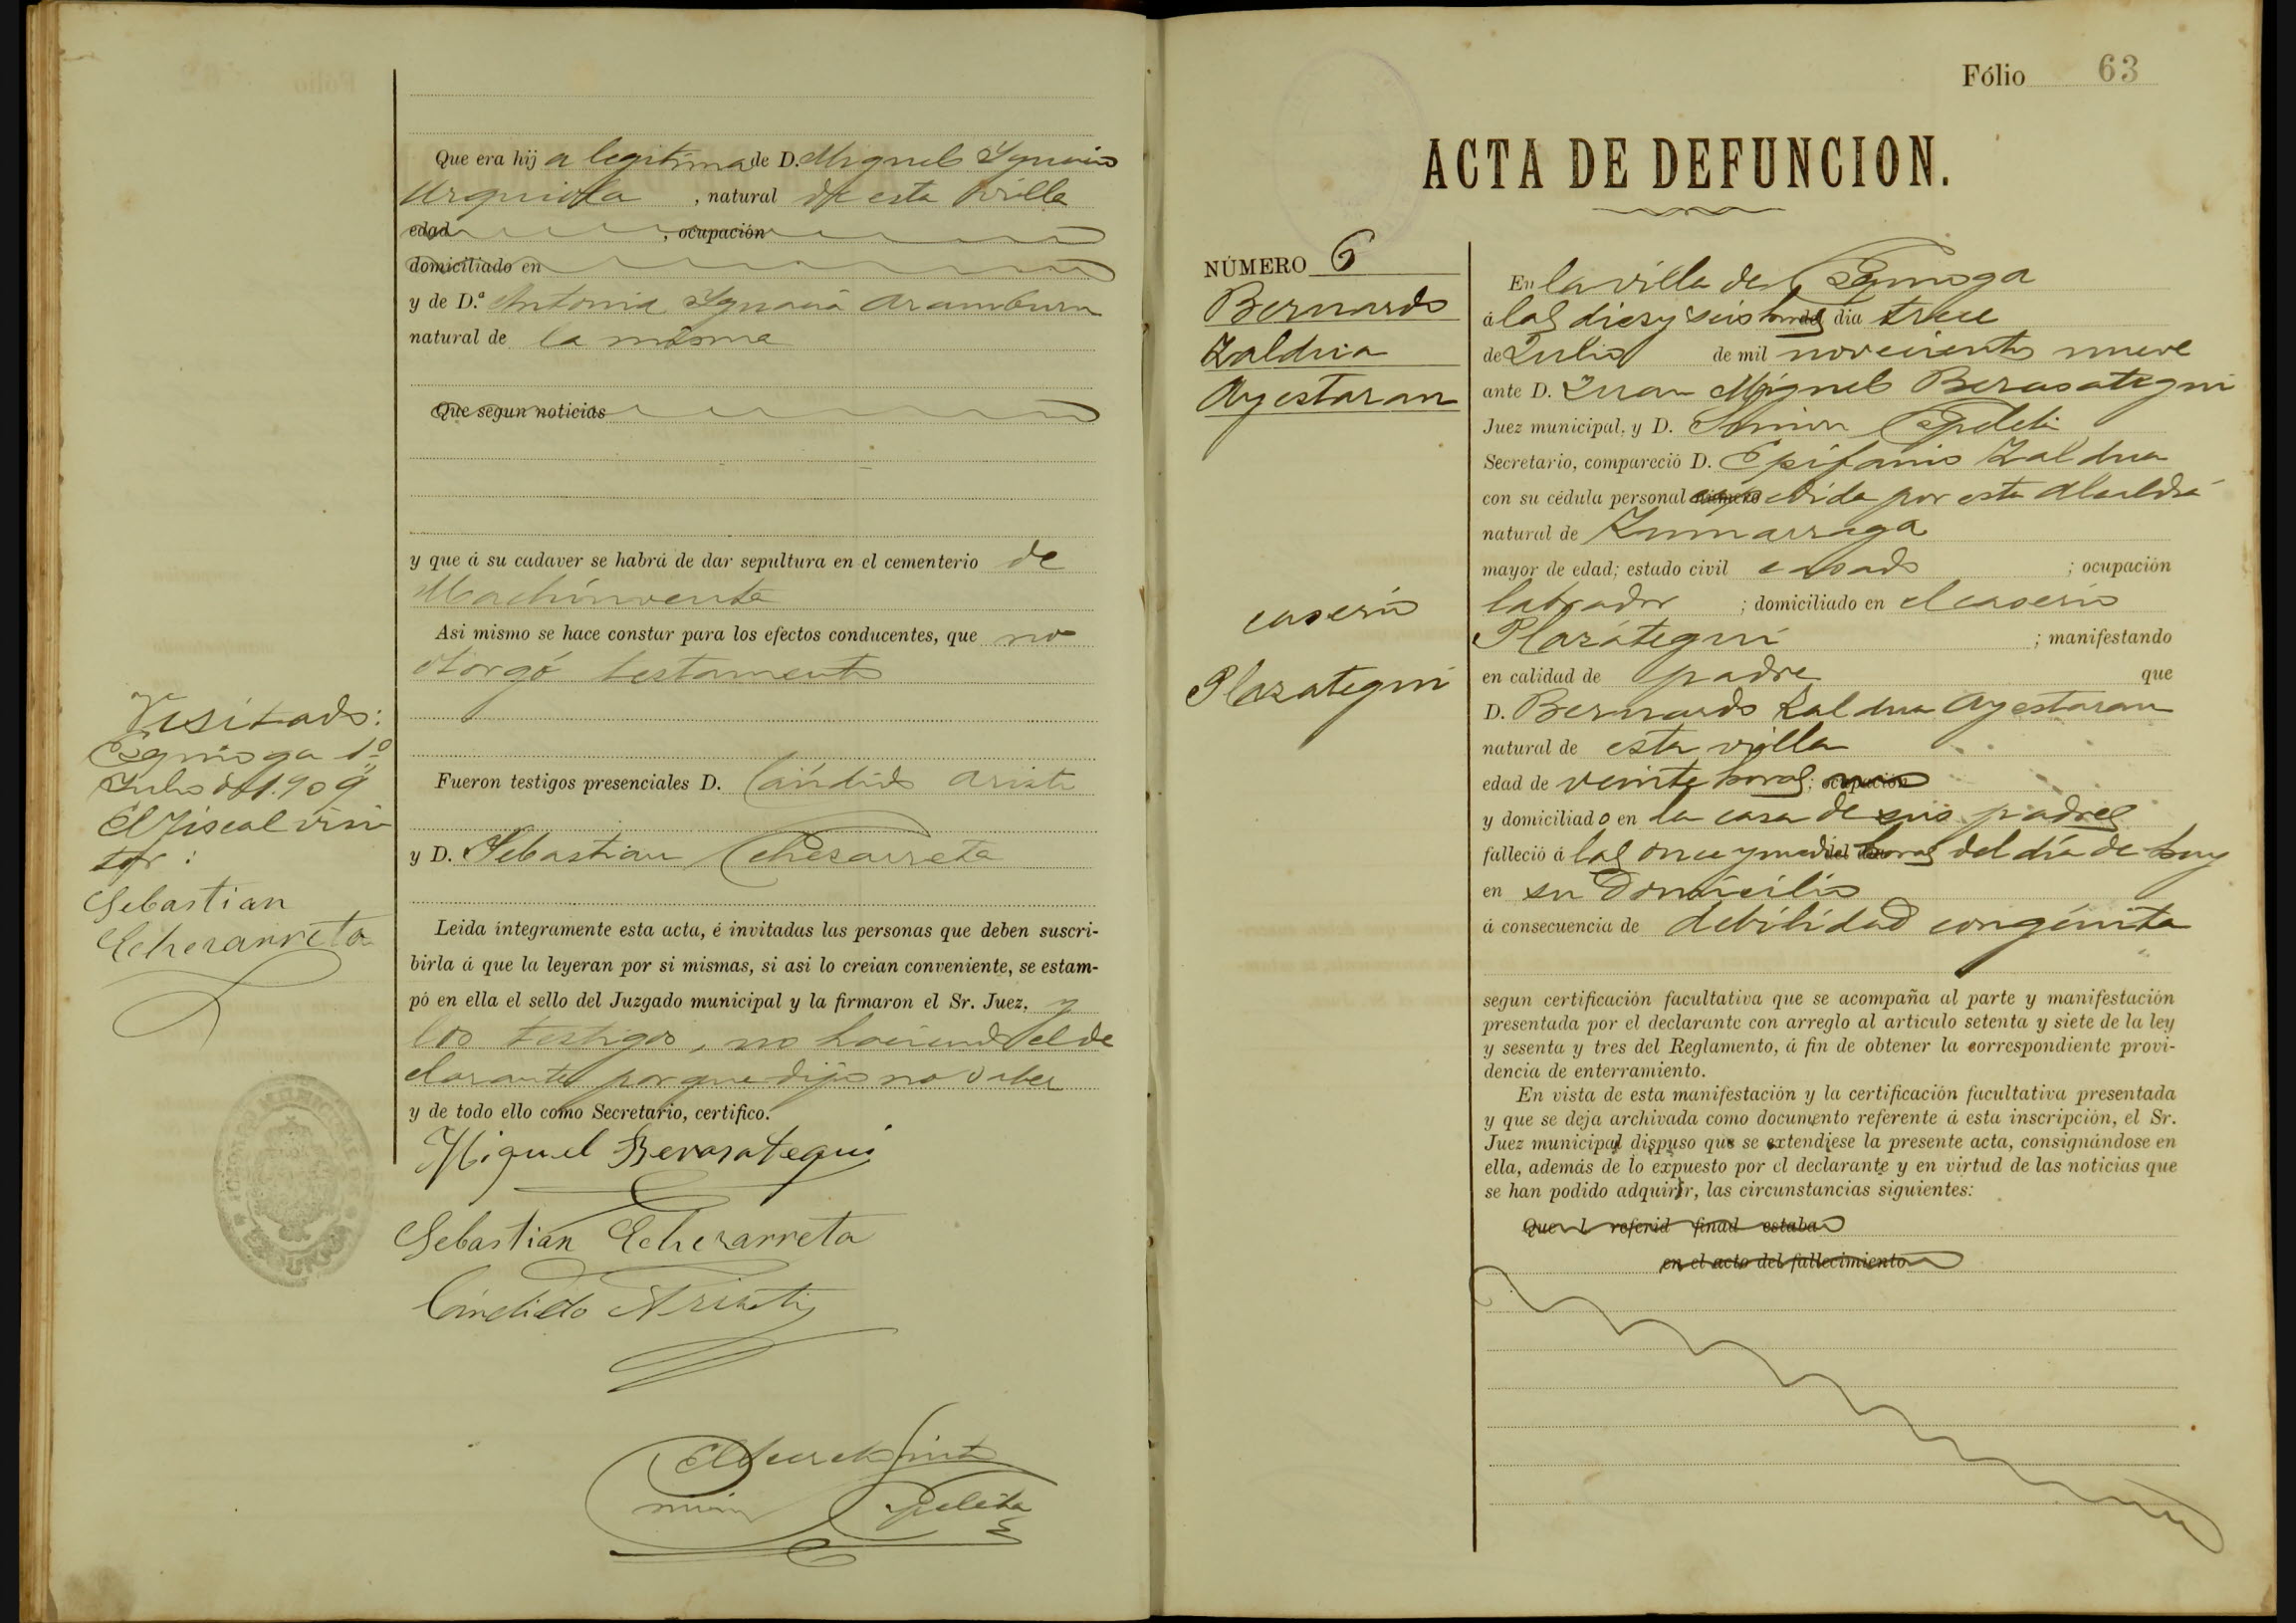 Que era hija legitima de D. Miguel Ygnacio
Urquiola, natural de esta villa
edad , ocupación
domiciliado en
y de D.ª Antonia Ygnacia Aramburu
natural de la misma
Que segun noticias
y que á su cadaver se habrá de dar sepultura en el cementerio de
Machinventa
Asi mismo se hace constar para los efectos conducentes, que no
otorgó testamento
Fueron testigos presenciales D. Cándido Aristi
y D. Sebastian Echezarreta
Leida íntegramente esta acta, é invitadas las personas que deben suscri-
birla á que la leyeran por si mismas, si asi lo creian conveniente, se estam-
pó en ella el sello del Juzgado municipal y la firmaron el Sr. Juez, y
los testigos, no haciendo el de
clarante porque dijo no saber
y de todo ello como Secretario, certifico.
Miguel Berasategui
Sebastián Echezarreta
Cándido Aristi
Visitado:
Ezquioga 1º
Julio de 1.909
El Fiscal visi
tor:
Sebastian
Echezarreta
Fólio 63
ACTA DE DEFUNCION.
NÚMERO 6
Bernardo
Zaldua
Ayestaran
caserio
Plazategui
En la villa de Ezquioga
á las diez y seis horas del dia trece
de Julio de mil novecientos nueve
ante D. Juan Miguel Berasategui
Juez municipal, y D. Simon
Secretario, compareció D. Epifanio Zaldua
con su cédula personal número expedida por esta Alcaldía
natural de Zumarraga
mayor de edad; estado civil casado ; ocupación
labrador ; domiciliado en el caserio
Plazátegui ; manifestando
en calidad de padre que
D. Bernardo Zaldua Ayestaran
natural de esta villa
edad de veinte horas; ocupación
y domiciliado en la casa de sus padres
falleció á las once y media horas del día de hoy
en su domicilio
á consecuencia de debilidad congénita
segun certificación facultativa que se acompaña al parte y manifestación
presentada por el declarante con arreglo al articulo setenta y siete de la ley
y sesenta y tres del Reglamento, á fin de obtener la correspondiente provi-
dencia de enterramiento.
En vista de esta manifestación y la certificación facultativa presentada
y que se deja archivada como documento referente á esta inscripción, el Sr.
Juez municipal dispuso que se extendiese la presente acta, consignándose en
ella, además de lo expuesto por el declarante y en virtud de las noticias que
se han podido adquirir, las circunstancias siguientes:
Que l referid finad estaba
en el acto del fallecimiento